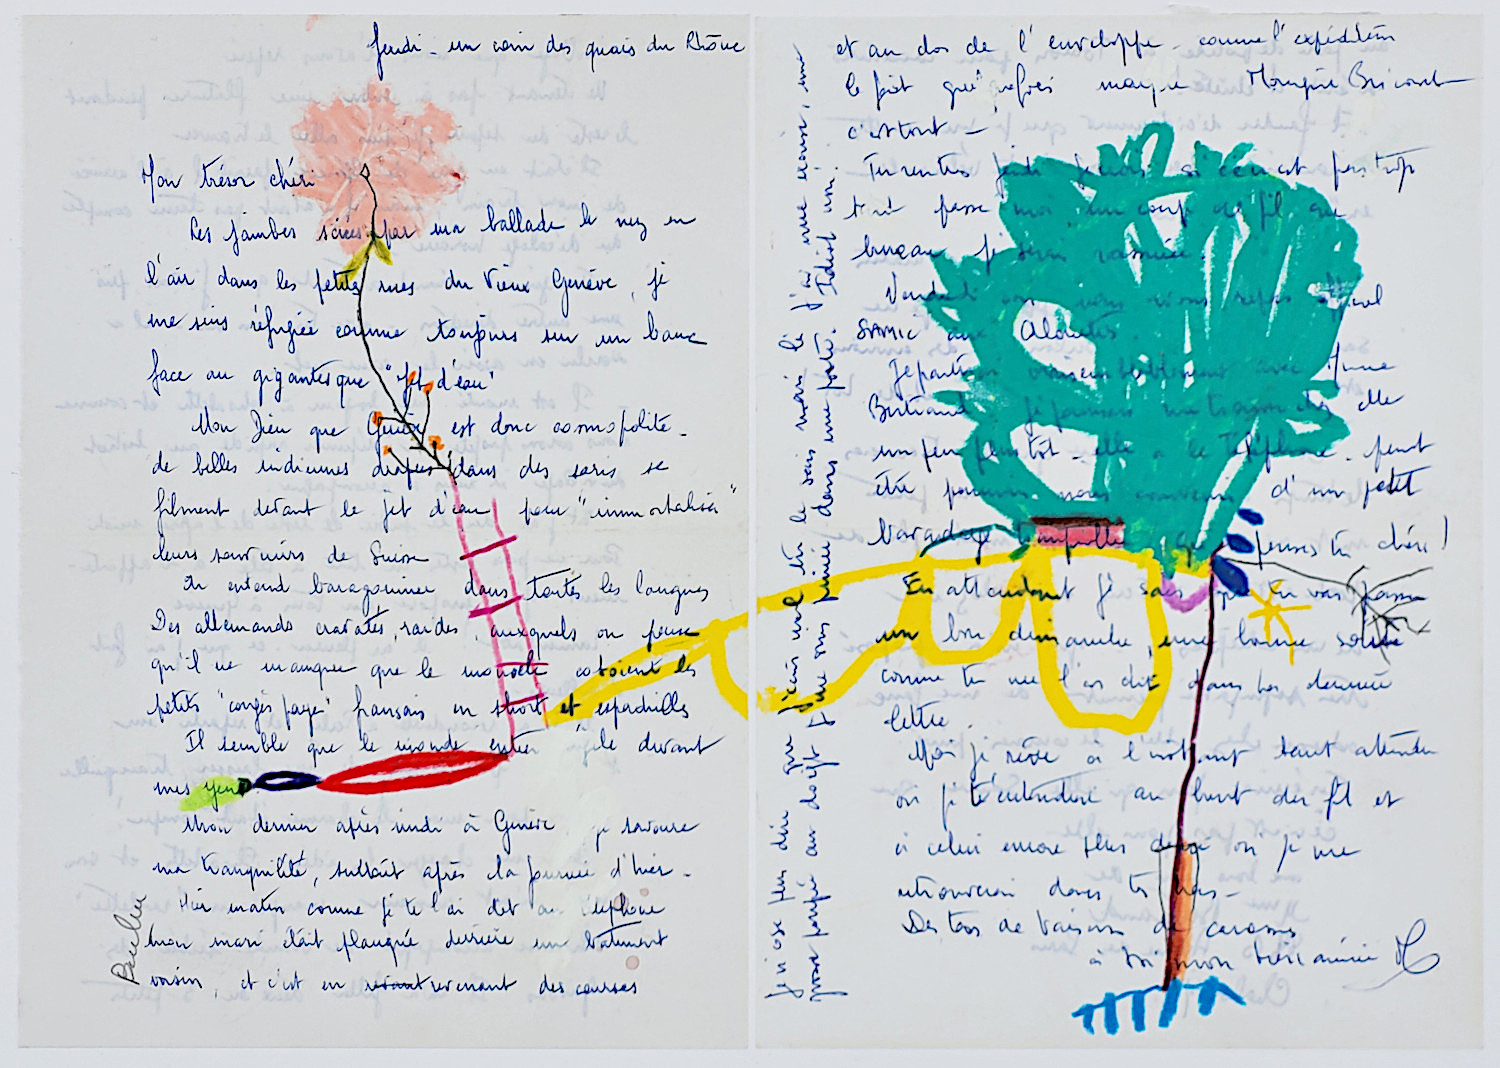 Jeudi - un coin des quais du Rhône
Mon trésor chéri
Les jambes sciées par ma ballade le nez en
l'air dans les petites rues du Vieux Genève, je
me suis réfugiée comme toujours sur un banc
face au gigantesque "jet d'eau"
Mon Dieu que Genève est donc cosmopolite -
de belles indiennes drapées dans des saris se
filment devant le jet d'eau pour "immortaliser"
leurs souvenirs de Suisse
On entend baragouiner dans toutes les langues
Des allemands cravatés, raides, auxquels on pense
qu'il ne manque que le monocle cotoient les
petits "congés payés" français en short et espadrilles
Il semble que le monde entier défile devant
mes yeux.
Mon dernier après midi à Genève je savoure
ma tranquilité, surtout après la journée d'hier -
Hier matin comme je te l'ai dit au téléphone
mon mari était planqué derrière un bâtiment
voisin, et c'est en revenant des courses
Paulin
J'ai une ... me
et au dos de l'enveloppe - comme l'expéditeur
le fait quelquefois marque Bricout
c'est tout -
Tu rentres jeudi si ce n'est pas trop
tard passe moi un coup de fil au
bureau je serai rassurée.
Vendredi
SAMIC aux Alouettes.
Je partirai vraisemblablement avec Mme
Bertrand
un peu plus tôt - elle a le téléphone - peut
être pourrons nous convenir d'un petit
bavardage tranquille qu'en penses tu chéri !
En attendant je sais que tu vas passer
un bon dimanche, une bonne soirée
comme tu me l'as dit dans ta dernière
lettre.
Moi je rêve à l'instant tant attendu
où je t'entendrai au bout du fil et
à celui encore plus doux où je me
retrouverai dans tes bras -
Des tas de baisers de caresses
à toi mon bien aimé